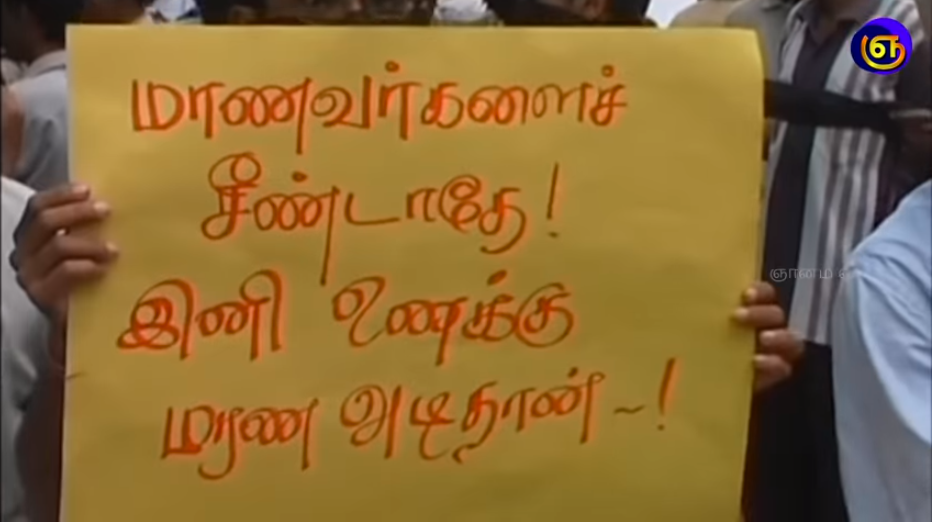 மாணவர்களைச்
சீண்டாதே!
இனி உணக்கு
மரண அடிதான் ~!
ஞானம்